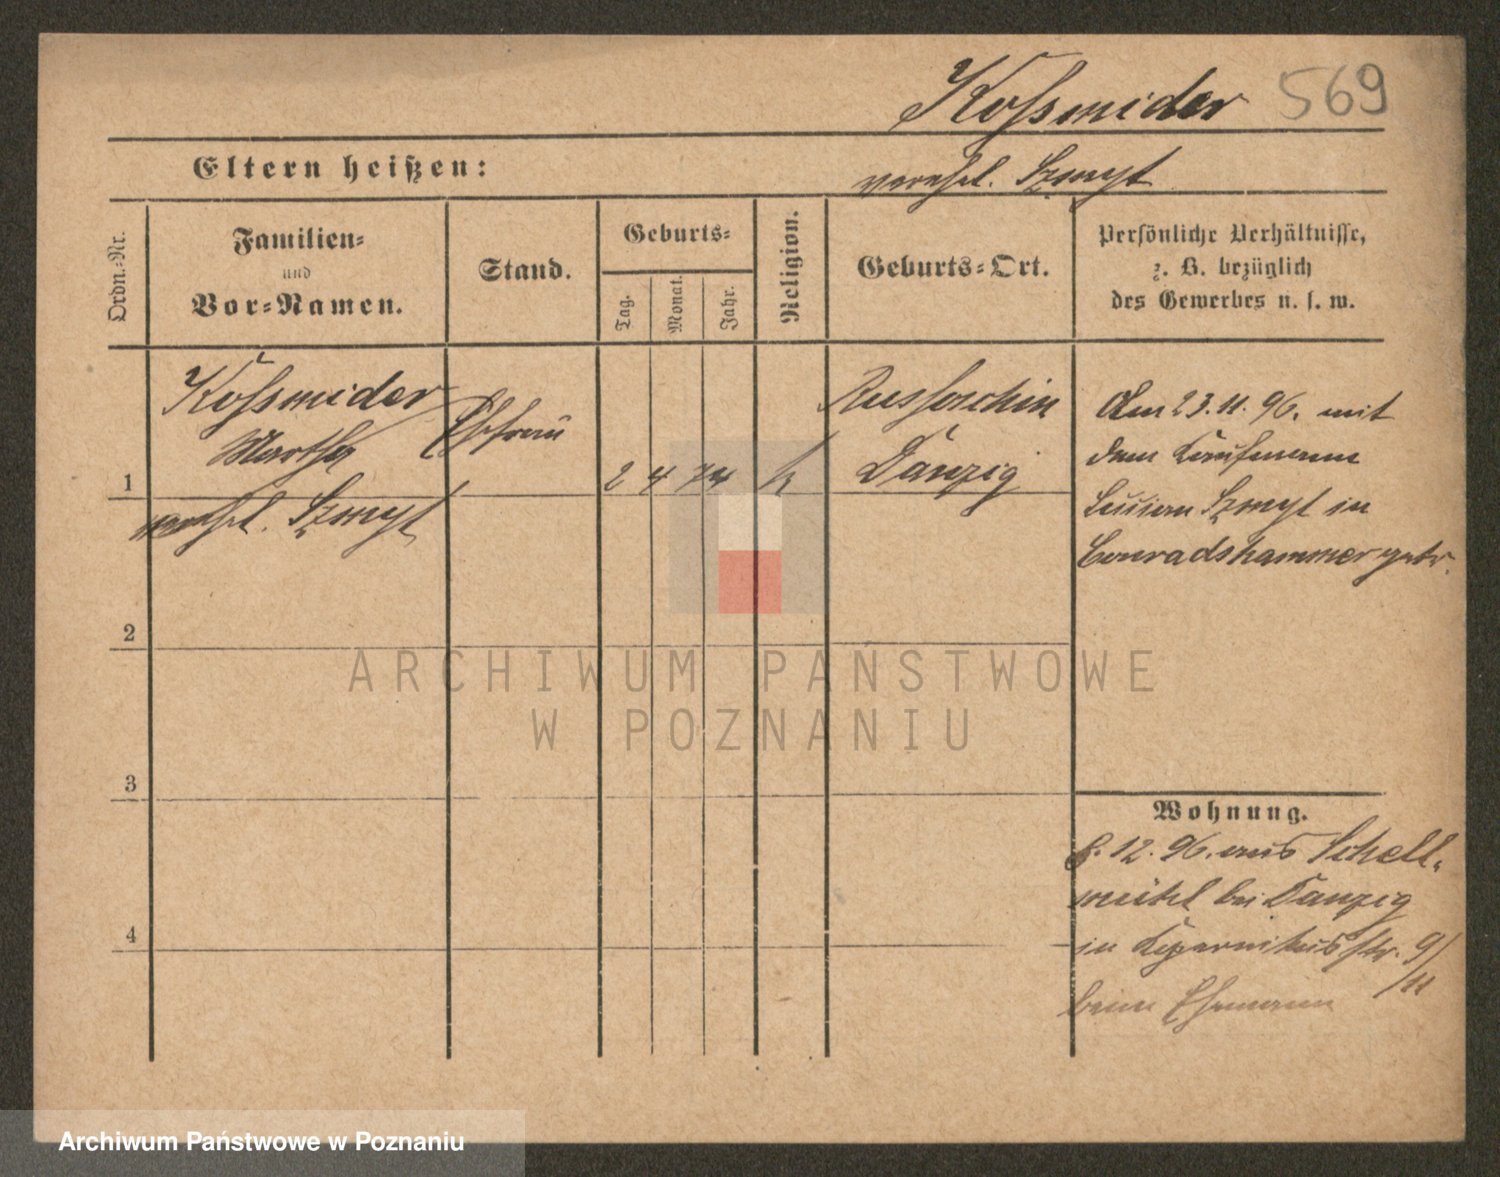 Koßmider 569
Eltern heißen:
verehel. Szmyt
Ordn.-Nr.
Familien-
und
Vor-Namen.
Stand.
Geburts-
Tag.
Monat.
Jahr.
Religion.
Geburts-Ort.
Persönliche Verhältnisse,
z. B. bezüglich
des Gewerbes u. s. w.
1
Koßmider
Martha
verehel. Szmyt
Ehefrau
2 4 74 k
Russoschin
Danzig
Am 23.11.96. mit
dem Kaufmann
Szmyt in
Conradshammer getr.
2
3
4
Wohnung.
8.12.96. aus Schell-
mühl bei Danzig
in Kopernikusstr. 9/11
beim Ehemann
ARCHIWUM PAŃSTWOWE
W POZNANIU
Archiwum Państwowe w Poznaniu